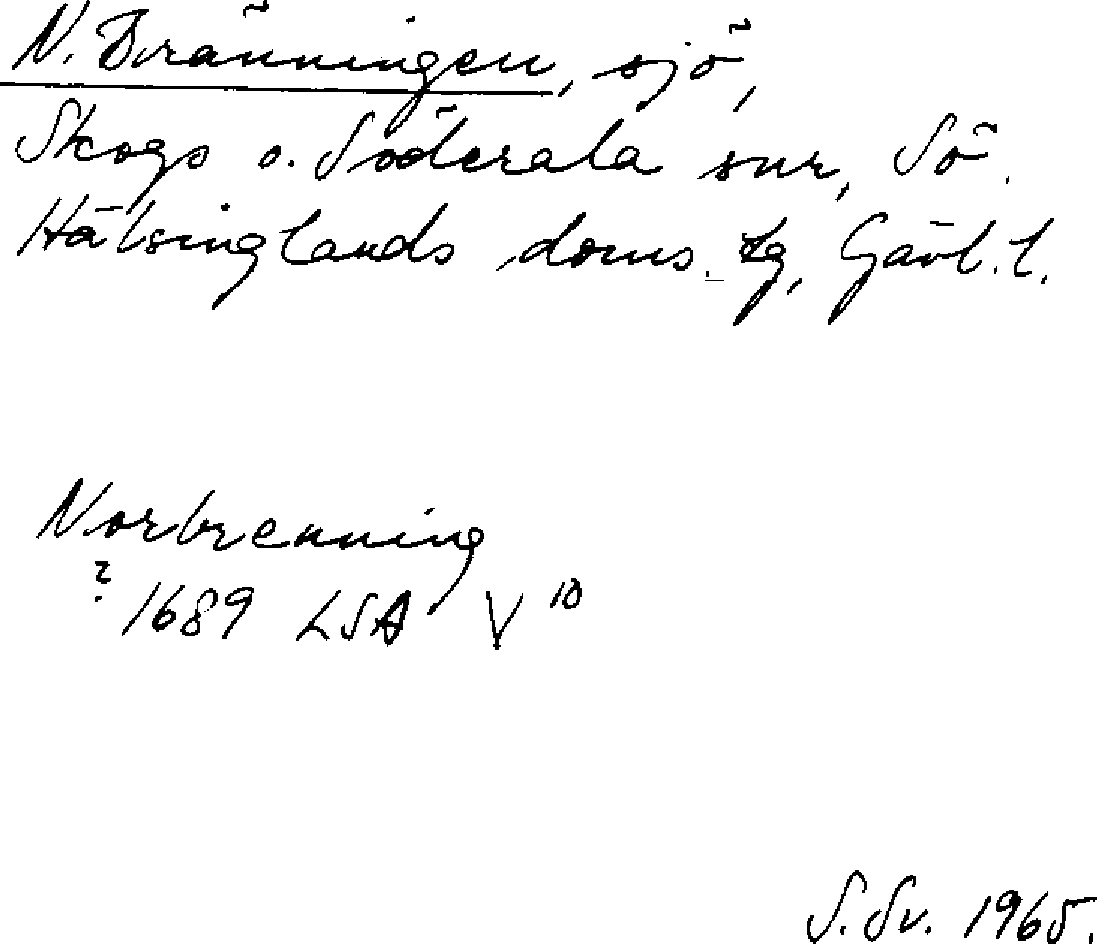 N. Bränningen, sjö,
Skogs o. Söderala snr, Sö.
Hälsinglands doms. tg, Gävl. l.
Norbrenning
? 1689 LSA V 10
S. Sv. 1965.